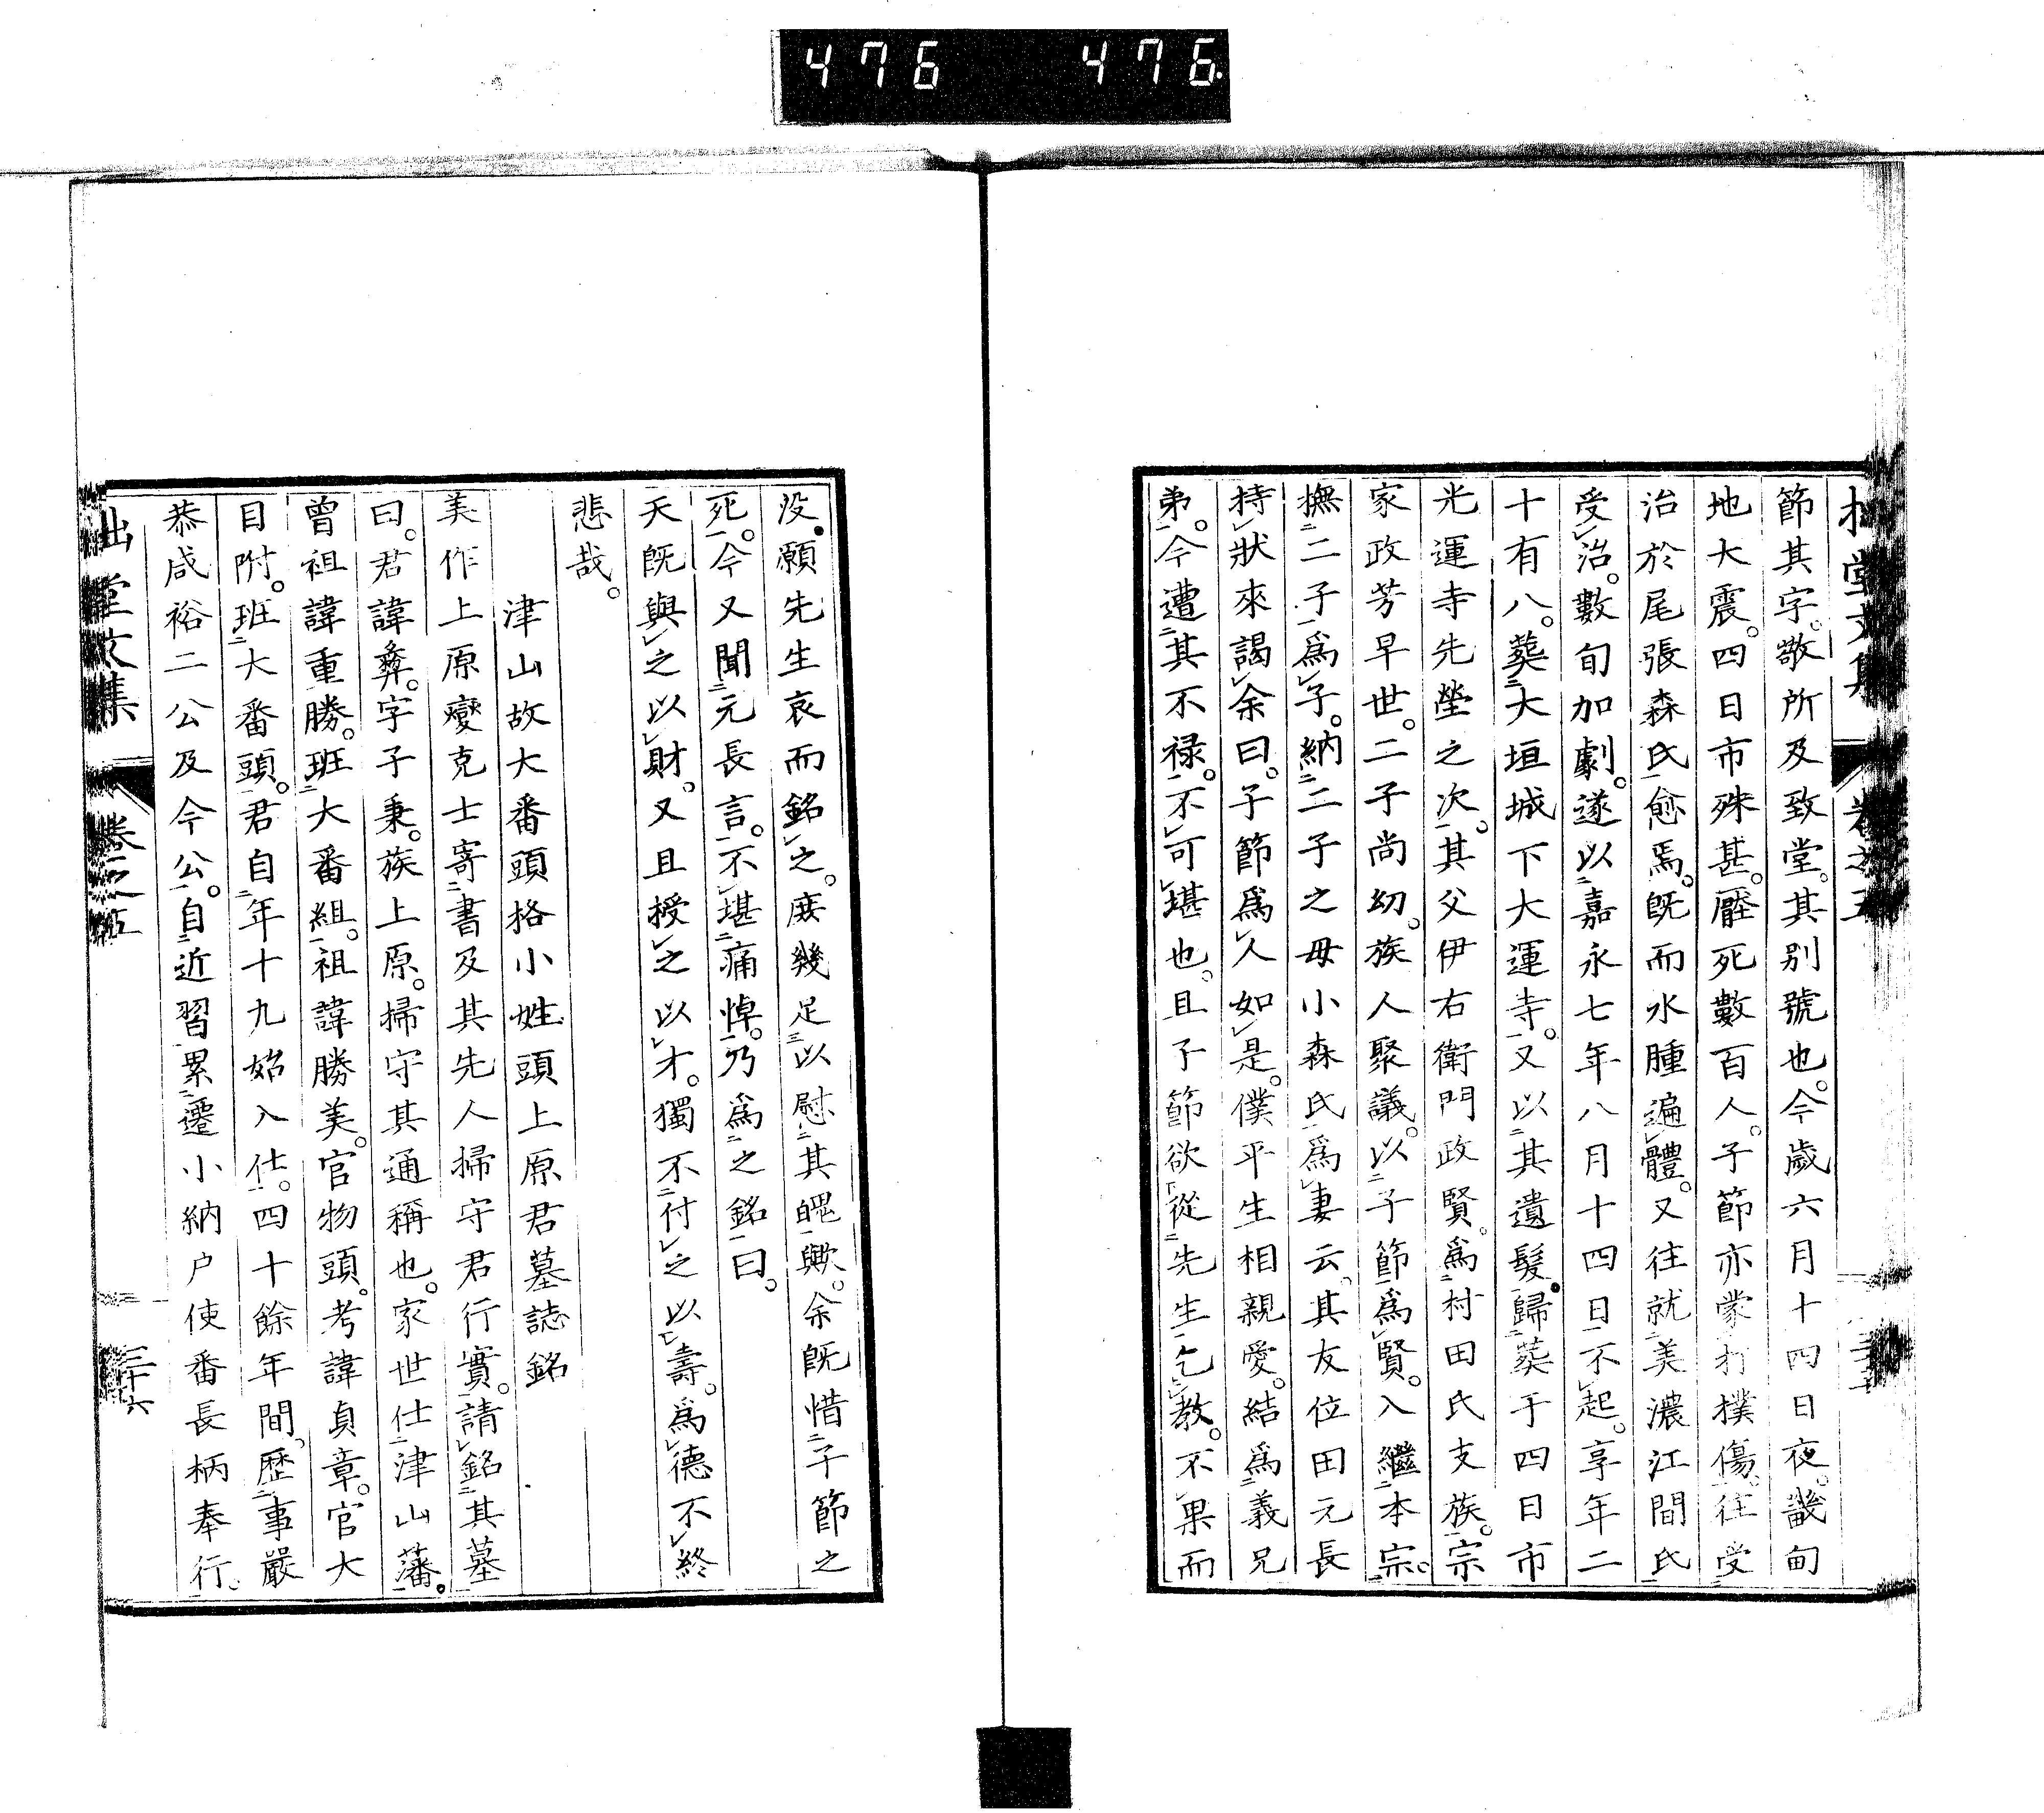 476 476
節其字。敬所及致堂。其別號也。今歲六月十四日夜。畿甸
地大震。四日市殊甚。壓死數百人。子節亦蒙打撲傷。往受
治於尾張森氏愈焉。既而水腫遍體。又往就美濃江間氏
受治。數旬加劇。遂以嘉永七年八月十四日不起。享年二
十有八。葬大垣城下大運寺。又以其遺髮。歸葬于四日市
光運寺先塋之次。其父伊右衛門政賢。爲村田氏支族。宗
家政芳早世。二子尚幼。族人聚議。以子節爲賢。入繼本宗。
撫二子爲子。納二子之母小森氏爲妻云。其友位田元長
持狀來謁余曰。子節爲人如是。僕平生相親愛。結爲義兄
弟。今遭其不禄。不可堪也。且子節欲從先生乞教。不果而
没。願先生哀而銘之。庶幾足以慰其魂歟。余既惜子節之
死。今又聞元長言。不堪痛悼。乃爲之銘曰。
天既與之以財。又且授之以才。獨不付之以壽。爲德不終
悲哉。
津山故大番頭格小姓頭上原君墓誌銘
美作上原變克士寄書及其先人掃守君行實。請銘其墓
曰。君諱彝。字子秉。族上原。掃守其通稱也。家世仕津山藩。
曾祖諱重勝。班大番組。祖諱勝美。官物頭。考諱貞章。官大
目附。班大番頭。君自年十九始入仕。四十餘年間。歷事嚴
恭成裕二公及今公。自近習累遷小納户使番長柄奉行。
堂文集 卷之五 三十六